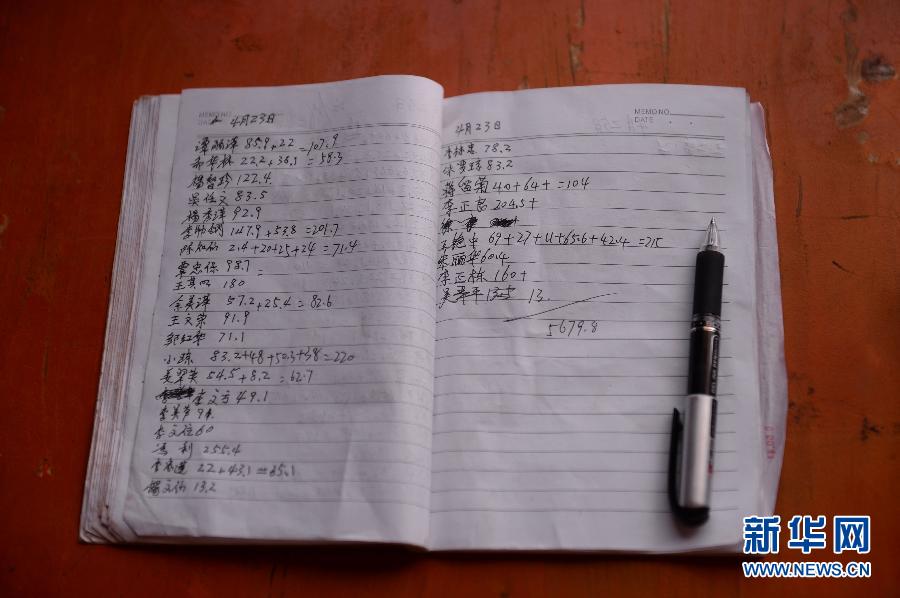 MEMO NO.
DATE
4月23日
85.9+22=107.9
22.2+36.1=58.3
杨智珍 122.4
吴位文 83.5
杨秀泽 92.9
李 147.9+53.8=201.7
陈 2.4+20+25+24=71.4
覃忠保 98.7
王 180
余美泽 57.2+25.4=82.6
王文荣 91.9
邹红 71.1
小琼 83.2+48+50.3+38=220
姜翠英 54.5+8.2=62.7
李文方 49.1
李美芦
李文位 60
冯利 255.4
李春莲 22+43.1=65.1
杨文仿 13.2
MEMO NO.
DATE
4月23日
李林忠 78.2
83.2
蒋 菊 40+64+=104
李正 204.5+
69+27+11+65.6+42.4=215
丽华 60.4
李正栋 160+
吴 平 13.
5679.8
新华网
WWW.NEWS.CN